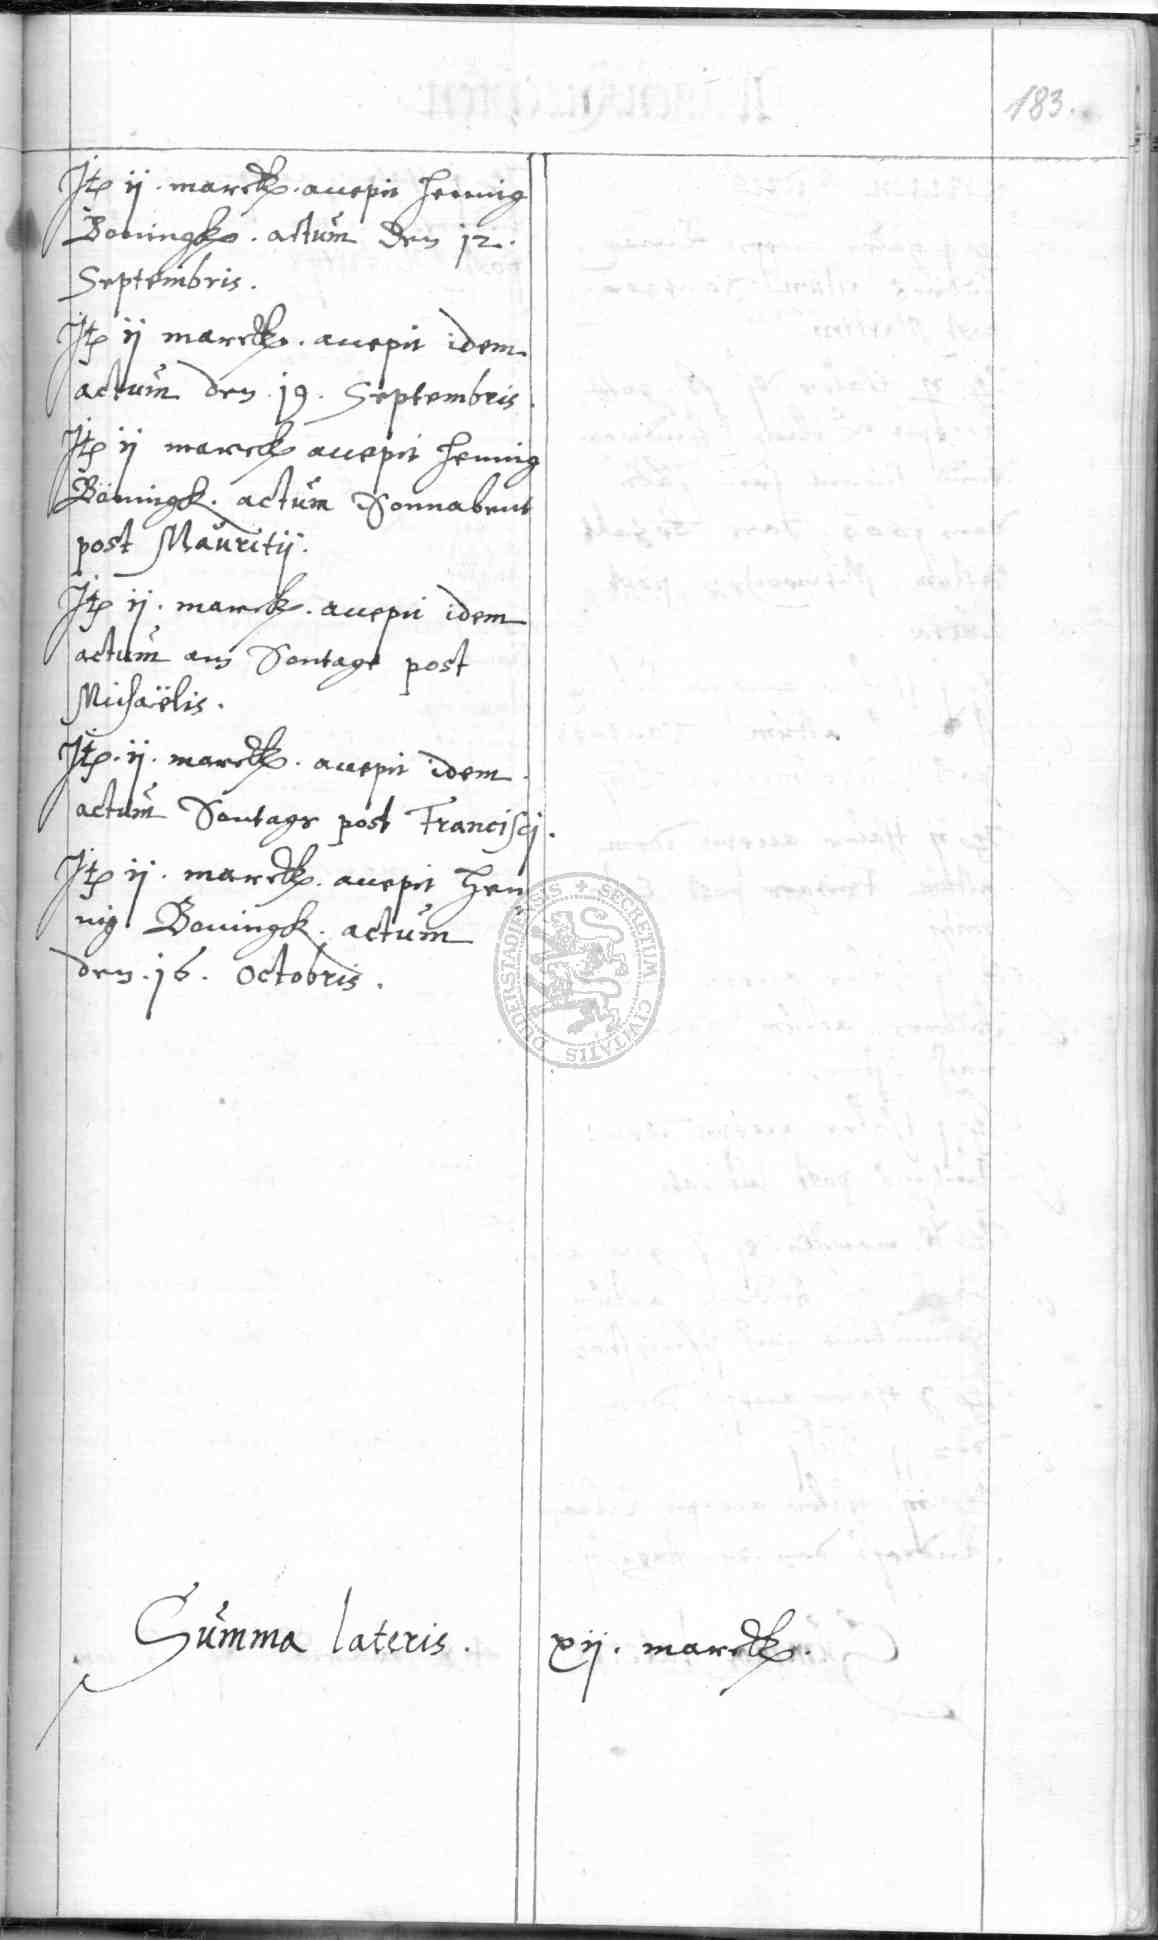 183.
Jt. ij. marck. accepit Hennig
Boningk. actum den 12.
Septembris.
Jt. ij marck. accepit idem
actum den. 19. Septembris.
Jt. ij marck accepit Hennig
Böningk. actum Sonnabent
post Mauritij.
Jt. ij. marck. accepit idem
actum am Sontage post
Michaëlis.
Jt. ij. marck. accepit idem.
actum Sontags post Francisci.
Jt. ij. marck. accepit Hen
nig Boningk. actum
den. 16. Octobris.
SECRETUM CIVITATIS DUDERSTADIENSIS
Summa lateris. xij. marck.